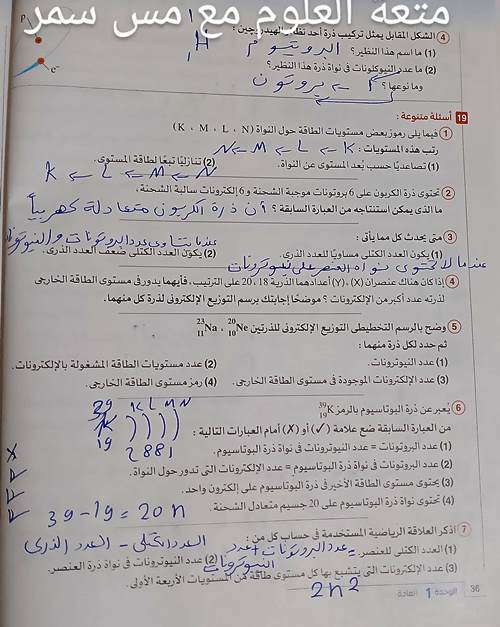 متعة العلوم مع مس سمر
④ الشكل المقابل يمثل تركيب ذرة أحد نظائر الهيدروجين :
(1) ما اسم هذا النظير؟ البروتيوم ¹₁H
(2) ما عدد النيوكلونات فى نواة ذرة هذا النظير؟
وما نوعها؟ 1 ← بروتون
p⁺
e⁻
19 أسئلة متنوعة :
① فيما يلى رموز بعض مستويات الطاقة حول النواة (K ، M ، L ، N)
رتب هذه المستويات : N ← M ← L ← K
(1) تصاعديًا حسب بُعد المستوى عن النواة. (2) تنازليًا تبعًا لطاقة المستوى.
K ← L ← M ← N
② تحتوى ذرة الكربون على 6 بروتونات موجبة الشحنة و 6 إلكترونات سالبة الشحنة،
ما الذى يمكن استنتاجه من العبارة السابقة؟ أن ذرة الكربون متعادلة كهربياً
③ متى يحدث كل مما يأتى : عندما يتساوى عدد البروتونات والنيوترونات
(1) يكون العدد الكتلى مساويًا للعدد الذرى. (2) يكون العدد الكتلى ضعف العدد الذرى.
عندما لا تحتوى نواه العنصر على نيوترونات
④ إذا كان هناك عنصران (X)، (Y) أعدادهما الذرية 18، 20 على الترتيب، فأيهما يدور فى مستوى الطاقة الخارجى
لذرته عدد أكبر من الإلكترونات؟ موضحًا إجابتك برسم التوزيع الإلكترونى لذرة كل منهما.
⑤ وضح بالرسم التخطيطى التوزيع الإلكترونى للذرتين ²⁰₁₀Ne ، ²³₁₁Na
ثم حدد لكل ذرة منهما :
(1) عدد النيوترونات. (2) عدد مستويات الطاقة المشغولة بالإلكترونات.
(3) عدد الإلكترونات الموجودة فى مستوى الطاقة الخارجى. (4) رمز مستوى الطاقة الخارجى.
⑥ يُعبر عن ذرة البوتاسيوم بالرمز ³⁹₁₉K
39 K L M N
K ) ) ) )
19 2 8 8 1
من العبارة السابقة ضع علامة (✓) أو (✗) أمام العبارات التالية :
(1) عدد البروتونات = عدد النيوترونات فى نواة ذرة البوتاسيوم. ✗
(2) عدد البروتونات فى نواة ذرة البوتاسيوم = عدد الإلكترونات التى تدور حول النواة. ✓
(3) يحتوى مستوى الطاقة الأخير فى ذرة البوتاسيوم على إلكترون واحد. ✓
(4) تحتوى نواة ذرة البوتاسيوم على 20 جسيم متعادل الشحنة. ✓
39 - 19 = 20 n
⑦ اذكر العلاقة الرياضية المستخدمة فى حساب كل من : العدد الكتلى - العدد الذرى
(1) العدد الكتلى للعنصر. = عدد البروتونات + عدد النيوترونات (2) عدد النيوترونات فى نواة ذرة العنصر.
(3) عدد الإلكترونات التى يتشبع بها كل مستوى طاقة من المستويات الأربعة الأولى.
2n²
الوحدة 1 المادة 36